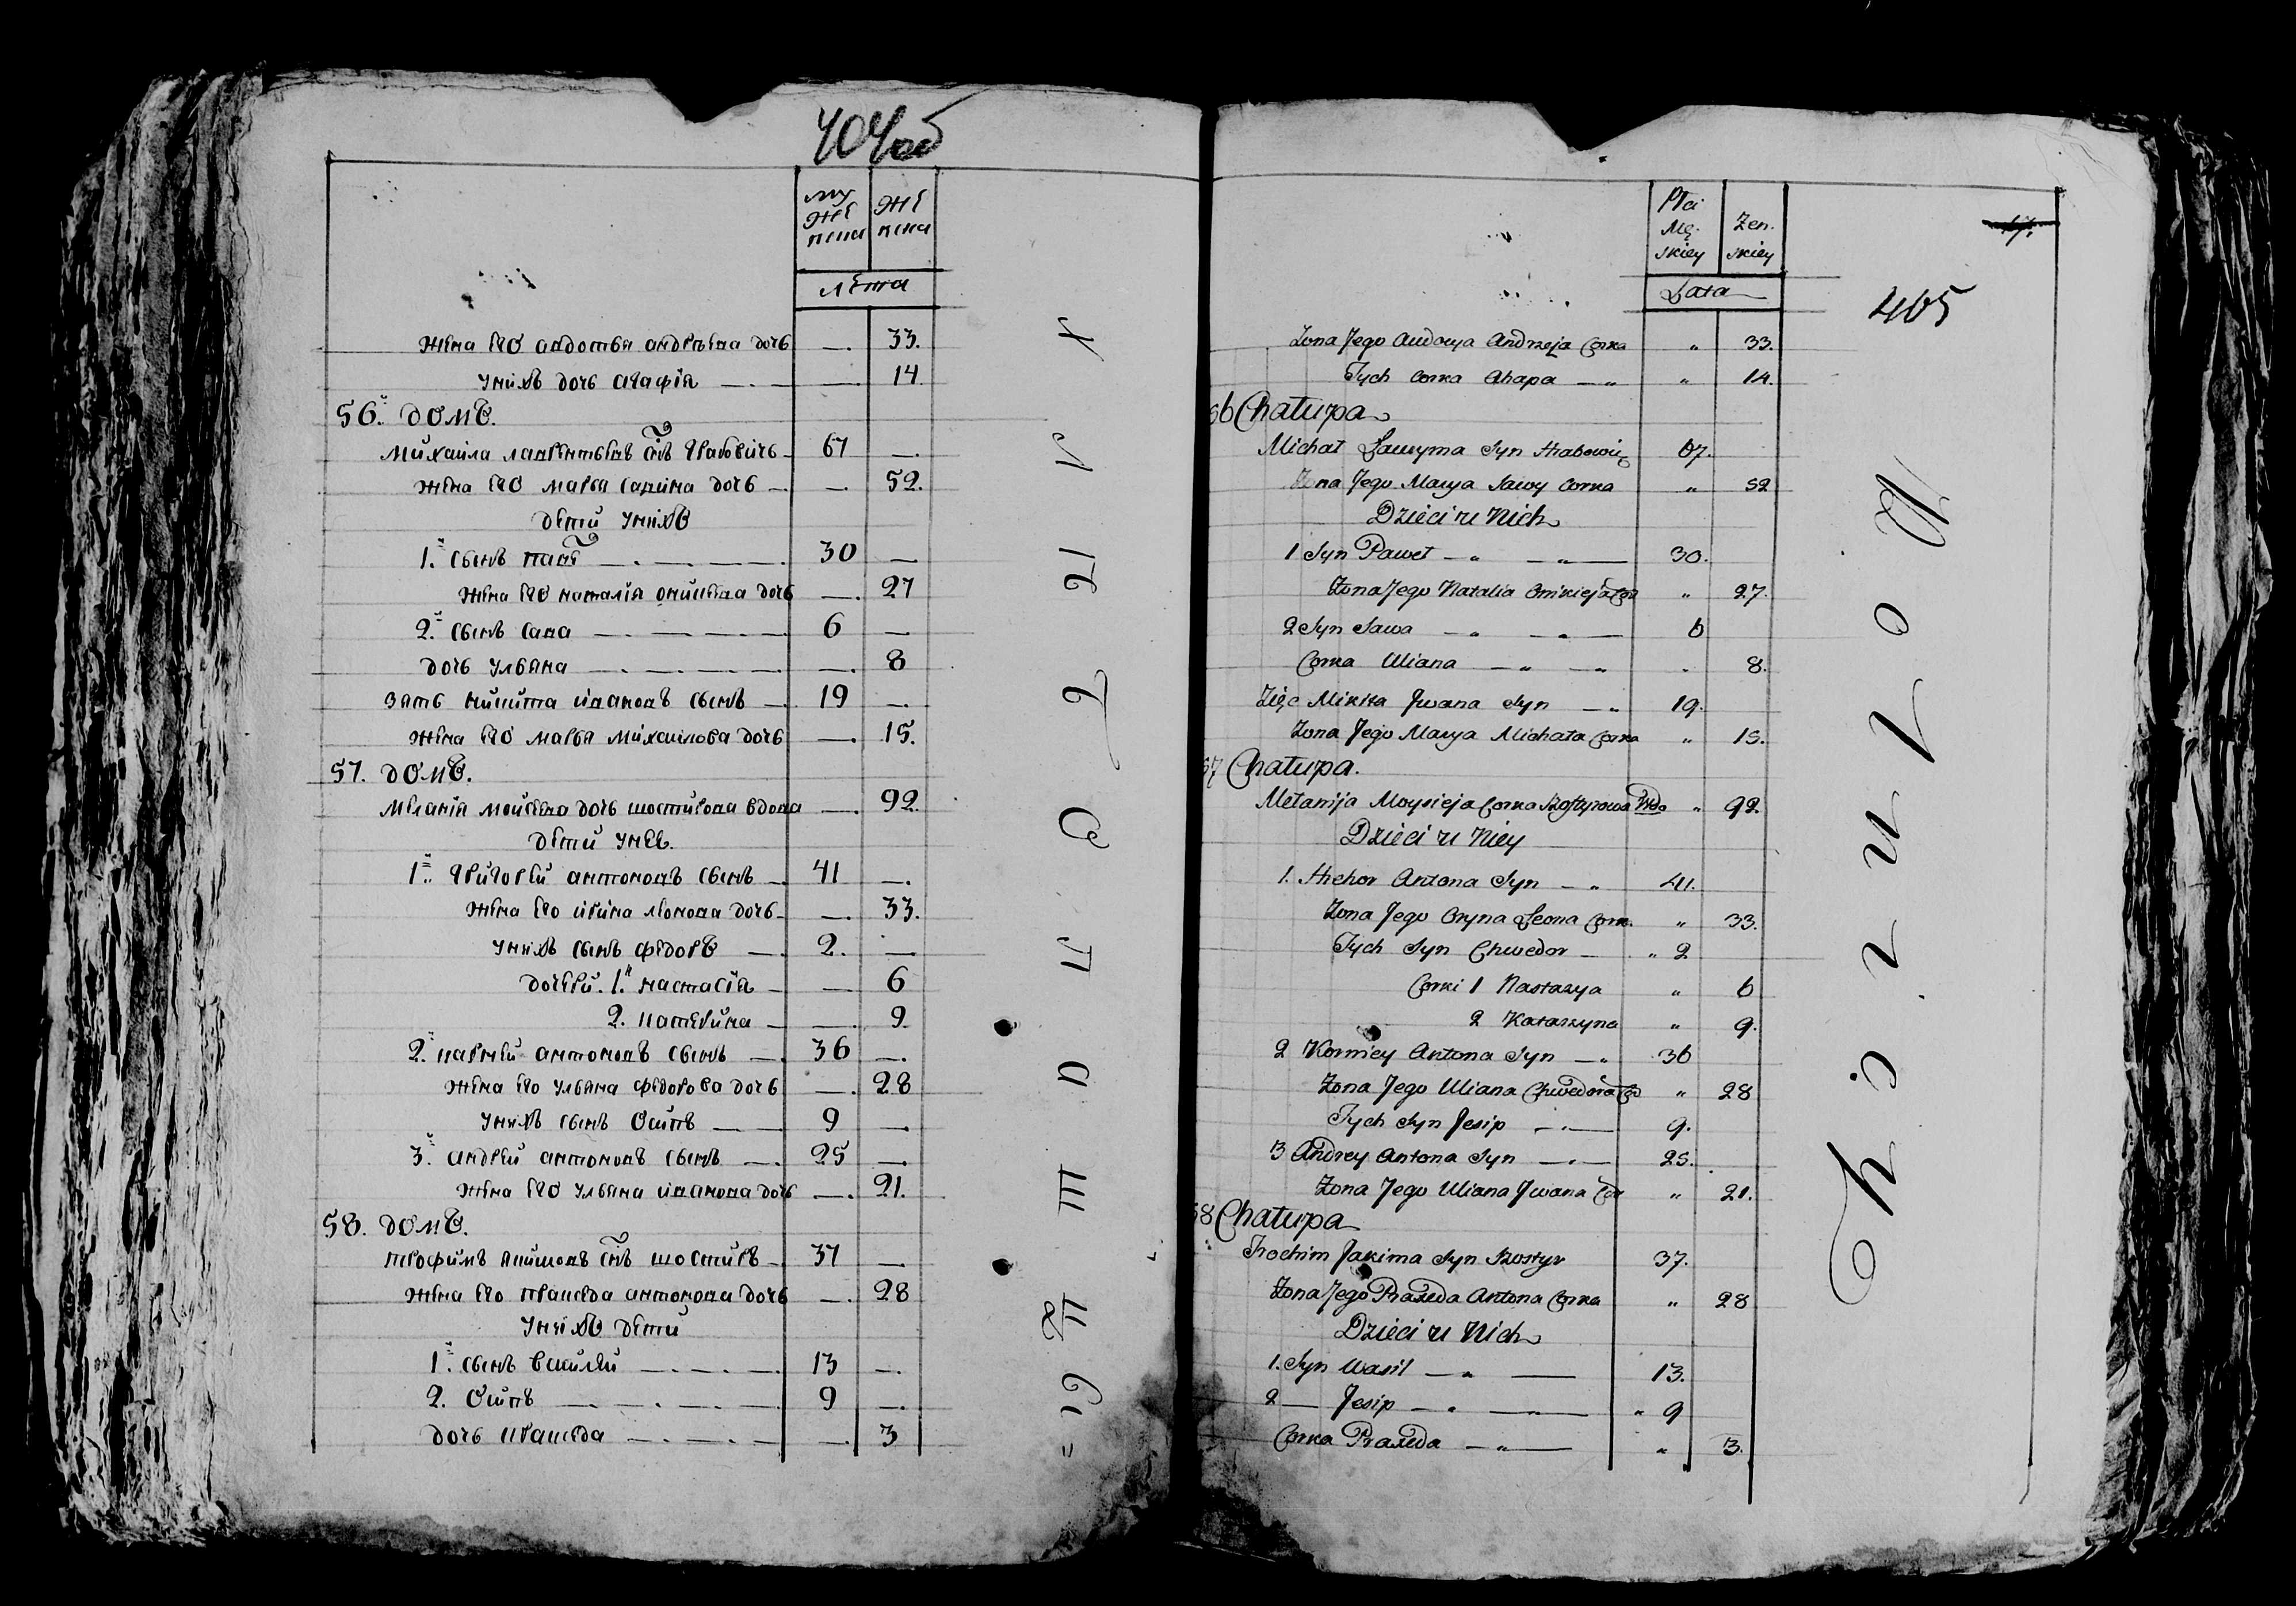 404об
му же ска
же ска
лѣта
жена его авдотья андрѣева дочь — 33.
у нихъ дочь агафія — 14.
56. домъ.
михаила лаврентьевъ снъ грабовичь 67 —
жена его марья савина дочь — 52.
дети у нихъ
1. сынъ паве 30 —
жена его наталія дочь — 27
2. сынъ сава 6 —
дочь ульяна — 8
зять никита ивановъ сынъ 19 —
жена его марья михаилова дочь — 15.
57. домъ.
меланія моисеева дочь шостикова вдова — 92.
дети у нев.
1. григорей антоновъ сынъ 41 —
жена его ирина леонова дочь — 33.
у нихъ сынъ федоръ 2. —
дочерей. 1. настасія — 6
2. катерина — 9
2. карней антоновъ сынъ 36 —
жена его ульяна федорова дочь — 28
у нихъ сынъ осипъ 9 —
3. андрей антоновъ сынъ 25 —
жена его ульяна иванова дочь — 21.
58. домъ.
трофимъ якимовъ снъ шостиръ 37 —
жена его праседа антонова дочь — 28
у нихъ дети
1. сынъ василей 13 —
2. осипъ 9 —
дочь праседа — 3
Płci Mę. skiey
Zen. skiey
Lata
405
Zona Jego Audocya Andrzeja Corka " 33.
Tych Corka Ahapa — " " 14.
56 Chałupa
Michał Ławryma Syn Hrabowicz 67.
Zona Jego Marya Sawy Corka " 52
Dzieci u Nich
1 Syn Paweł — " — " — 30.
Zona Jego Natalia Onikieja Cor " 27.
2 Syn Sawa — " — " — 6
Corka Uliana — " — " . 8.
Zięc Mikita Jwana Syn — " 19.
Zona Jego Marya Michała Corka " 15.
57 Chałupa.
Mełanija Moysieja Corka Szostyrowa Wdo " 92.
Dzieci u Niey
1. Hrehor Antona Syn — " 41.
Zona Jego Oryna Leona Cork. " 33.
Tych Syn Chwedor — " 2
Corki 1 Nastazya " 6
2 Katarzyna " 9.
2 Korniey Antona Syn — " 36
Zona Jego Uliana Chwedora Co " 28
Tych Syn Jesip — " — 9.
3 Andrey Antona Syn — " — 25.
Zona Jego Uliana Jwana Cor " 21.
58 Chałupa
Trochim Jakima Syn Szostyr 37.
Zona Jego Praxeda Antona Corka " 28
Dzieci u Nich
1. Syn Wasil — " — 13.
2 — Jesip — " — " — " 9
Corka Praxeda — " — " 3.